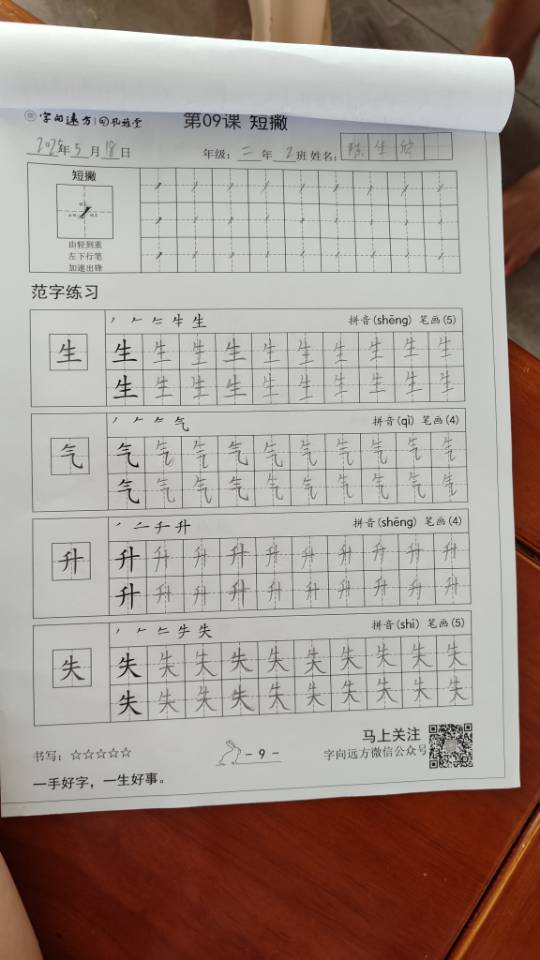 字向远方 砚雅堂
第09课 短撇
2025年5月18日 年级:二年2班 姓名:陈生
短撇
由轻到重
左下行笔
加速出锋
范字练习
生 拼音(shēng) 笔画(5)
生 生 生 生 生 生 生 生 生 生 生
生 生 生 生 生 生 生 生 生 生
气 拼音(qì) 笔画(4)
气 气 气 气 气 气 气 气 气 气 气
气 气 气 气 气 气 气 气 气 气
升 拼音(shēng) 笔画(4)
升 升 升 升 升 升 升 升 升 升 升
升 升 升 升 升 升 升 升 升 升
失 拼音(shī) 笔画(5)
失 失 失 失 失 失 失 失 失 失 失
失 失 失 失 失 失 失 失 失 失
书写:☆☆☆☆☆
- 9 -
马上关注
字向远方微信公众号
一手好字,一生好事。